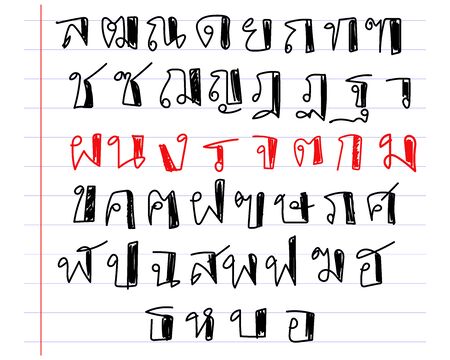 ล ฒ ณ ด ย ถ ท ฑ
ช ซ ฌ ญ ฎ ฏ ฐ ว
ผ น ง ร จ ต ก ม
ข ค ฅ ฝ ฃ ษ ภ ศ
ฬ ป ฉ ส พ ฟ ฆ ฮ
ธ ห บ อ